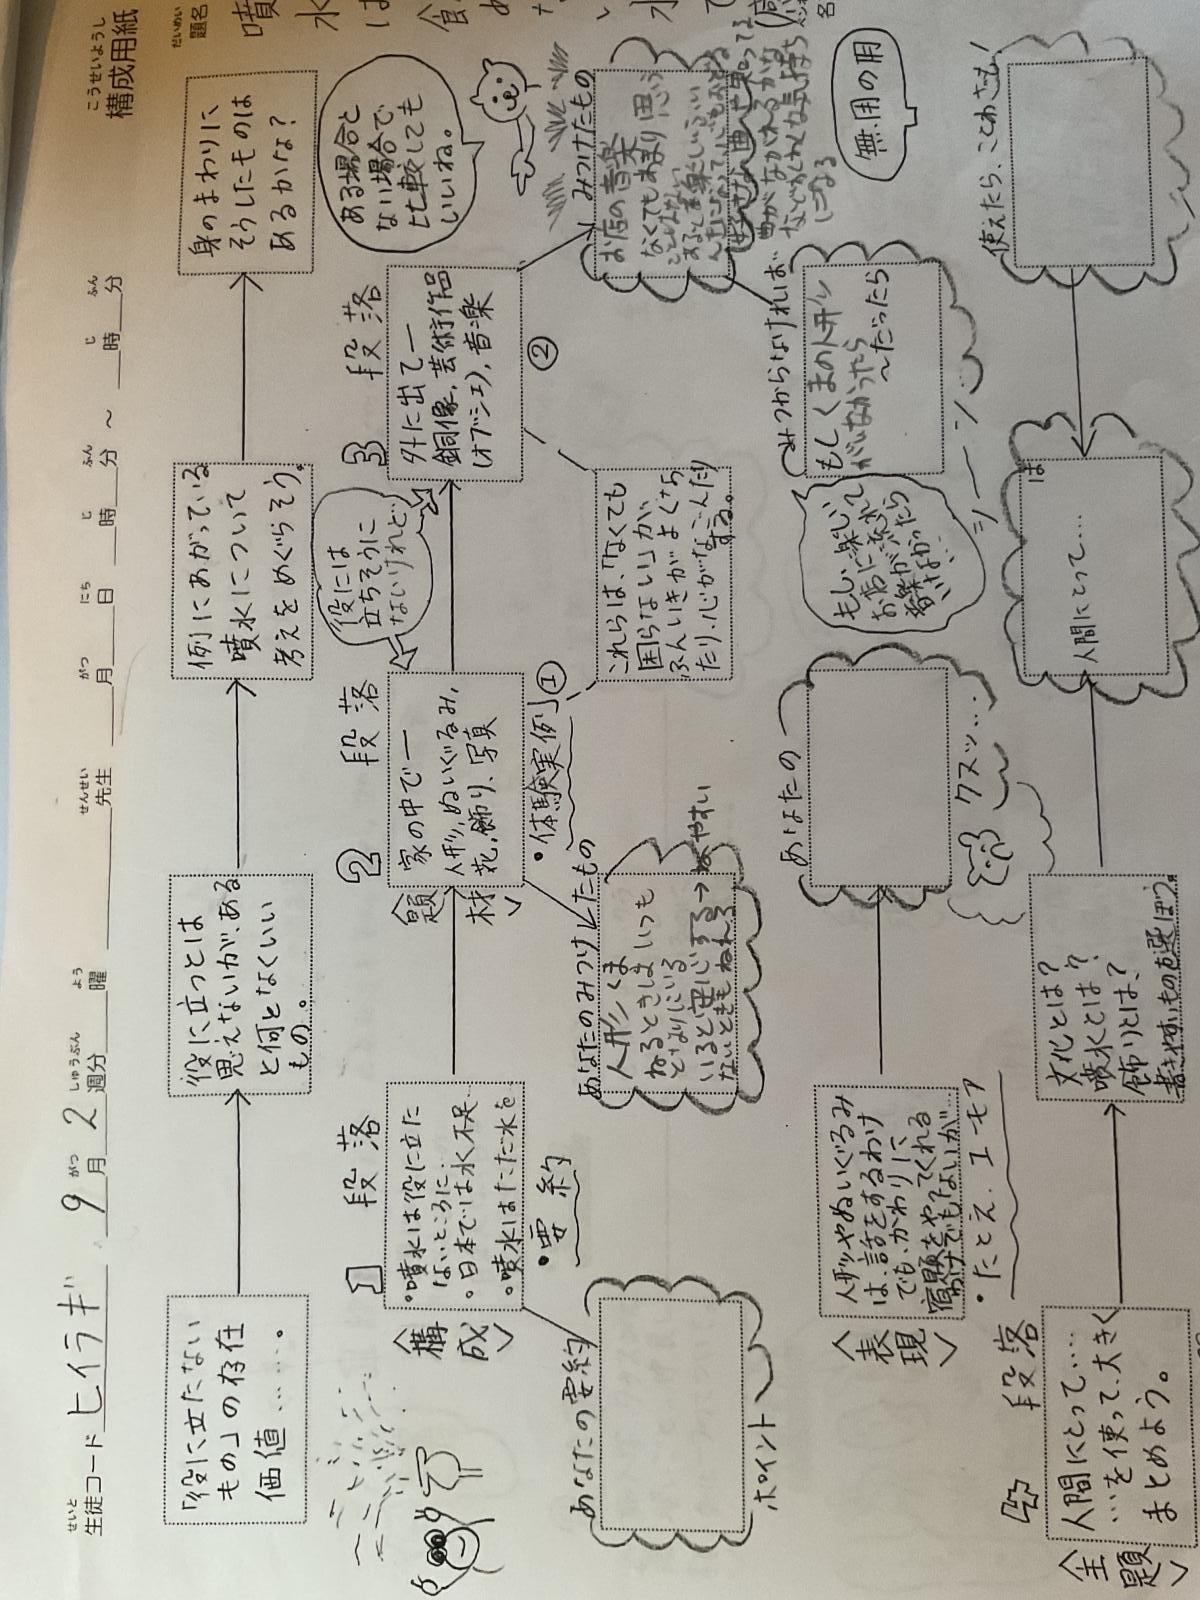 こうせいようし
構成用紙
だいめい
題名
せいと
生徒コード ヒイラギ 9月 2週分 曜 先生 月 日 時 分 ～ 時 分
がつ しゅうぶん よう せんせい がつ にち じ ふん じ ふん
「役に立たない
もの」の存在
価値……。
役に立つとは
思えないが、ある
と何となくいい
もの。
例にあがっている
噴水について
考えをめぐらそう。
身のまわりに
そうしたものは
あるかな？
ある場合と
ない場合で
比較しても
いいね。
1段落
〈構成〉
・噴水は役に立た
ないところに…
・日本では水不足…
・噴水はただ水を
・要約
あなたの要約
ポイント
2段落
〈題材〉
家の中で―
人形、ぬいぐるみ、
花、飾り、写真
・体験実例①
役には
立ちそうに
ないけれど
3段落
外に出て―
銅像、芸術作品
(オブジェ)、音楽
②
あなたのみつけたもの
人形くま
ねるときはいつも
となりにいる
いると安心する→ねやすい
ないときもねれる
これらは、「なくても
困らない」が、
ふんいきがよくなっ
たり、心がなごんだり
する。
みつけたもの
お店の音楽
なくてもあまり困らない
無用の用
〈表現〉
人形やぬいぐるみ
は、話をするわけ
でも、かわりに
宿題をやってくれる
わけでもないが…
・たとえ、ユーモア
あなたの
クスッ…
みつからなければ
もしくまの人形
がいなかったら
～だったら
もし、楽しい
お店に流れて
音楽がなかったら
シーン…
4段落
〈主題〉
人間にとって…
…を使って、大きく
まとめよう。
文化とは？
噴水とは？
飾りとは？
書きやすいものを選ぼう。
は
人間にとって…
使えたら、ことわざも！